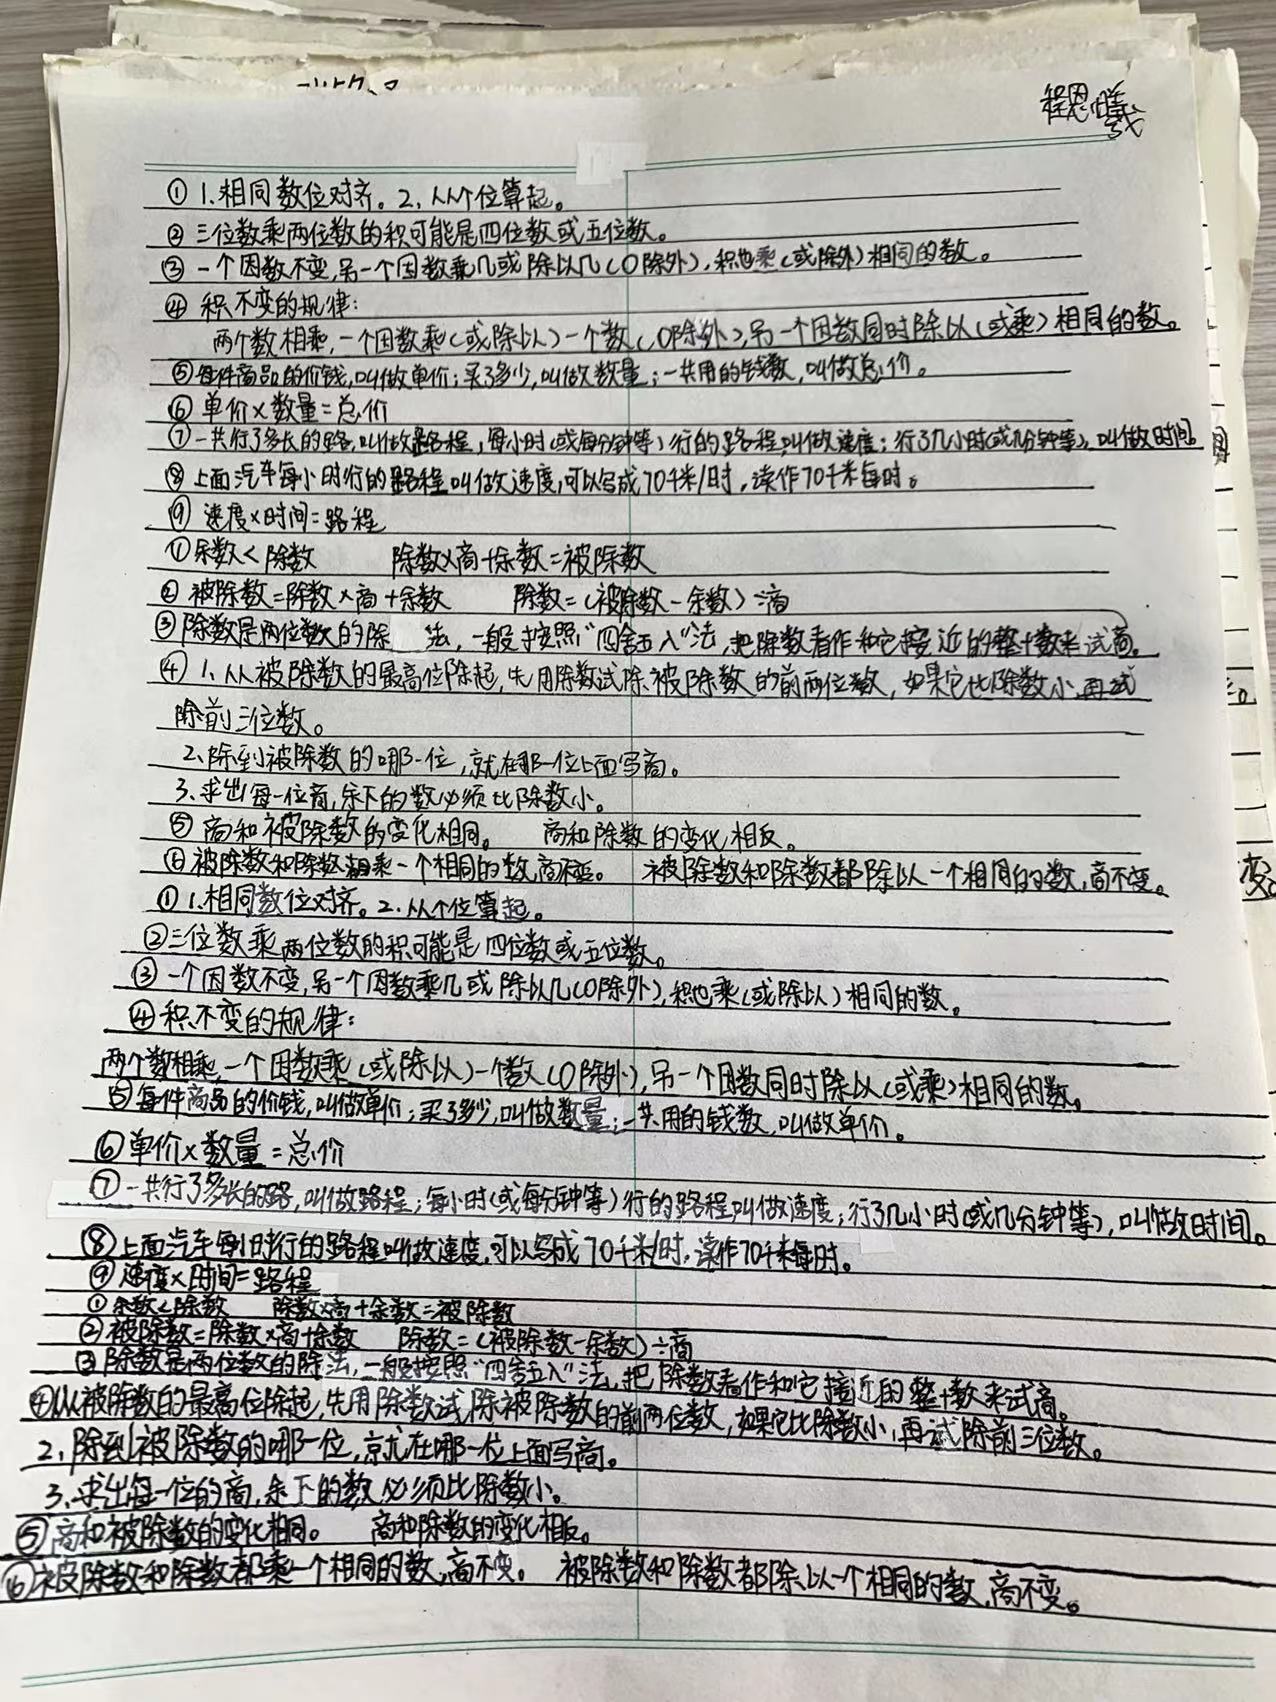 程恩曦
① 1.相同数位对齐。2.从个位算起。
② 三位数乘两位数的积可能是四位数或五位数。
③ 一个因数不变,另一个因数乘几或除以几(0除外),积也乘(或除外)相同的数。
④ 积不变的规律:
两个数相乘,一个因数乘(或除以)一个数(0除外),另一个因数同时除以(或乘)相同的数。
⑤每件商品的价钱,叫做单价;买了多少,叫做数量;一共用的钱数,叫做总价。
⑥ 单价×数量=总价
⑦一共行了多长的路,叫做路程,每小时(或每分钟等)行的路程,叫做速度;行了几小时(或几分钟等),叫做时间。
⑧ 上面汽车每小时行的路程叫做速度,可以写成70千米/时,读作70千米每时。
⑨ 速度×时间=路程
①余数<除数 除数×商+余数=被除数
② 被除数=除数×商+余数 除数=(被除数-余数)÷商
③除数是两位数的除 法,一般按照“四舍五入”法,把除数看作和它接近的整十数来试商。
④ 1.从被除数的最高位除起,先用除数试除被除数的前两位数,如果它比除数小,再试
除前三位数。
2.除到被除数的哪一位,就在那一位上面写商。
3.求出每一位商,余下的数必须比除数小。
⑤ 商和被除数的变化相同。 商和除数的变化相反。
⑥被除数和除数都乘一个相同的数,商不变。 被除数和除数都除以一个相同的数,商不变。
① 1.相同数位对齐。2.从个位算起。
②三位数乘两位数的积可能是四位数或五位数。
③ 一个因数不变,另一个因数乘几或除以几(0除外),积也乘(或除以)相同的数。
④积不变的规律:
两个数相乘,一个因数乘(或除以)一个数(0除外),另一个因数同时除以(或乘)相同的数。
⑤每件商品的价钱,叫做单价;买了多少,叫做数量;一共用的钱数,叫做单价。
⑥单价×数量=总价
⑦一共行了多长的路,叫做路程;每小时(或每分钟等)行的路程,叫做速度;行了几小时(或几分钟等),叫做时间。
⑧上面汽车每小时行的路程叫做速度,可以写成70千米/时,读作70千米每时。
⑨ 速度×时间=路程
①余数<除数 除数×商+余数=被除数
②被除数=除数×商+余数 除数=(被除数-余数)÷商
③除数是两位数的除法,一般按照“四舍五入”法,把除数看作和它接近的整十数来试商。
④从被除数的最高位除起,先用除数试除被除数的前两位数,如果它比除数小,再试除前三位数。
2.除到被除数的哪一位,就在哪一位上面写商。
3.求出每一位的商,余下的数必须比除数小。
⑤商和被除数的变化相同。 商和除数的变化相反。
⑥被除数和除数都乘一个相同的数,商不变。 被除数和除数都除以一个相同的数,商不变。